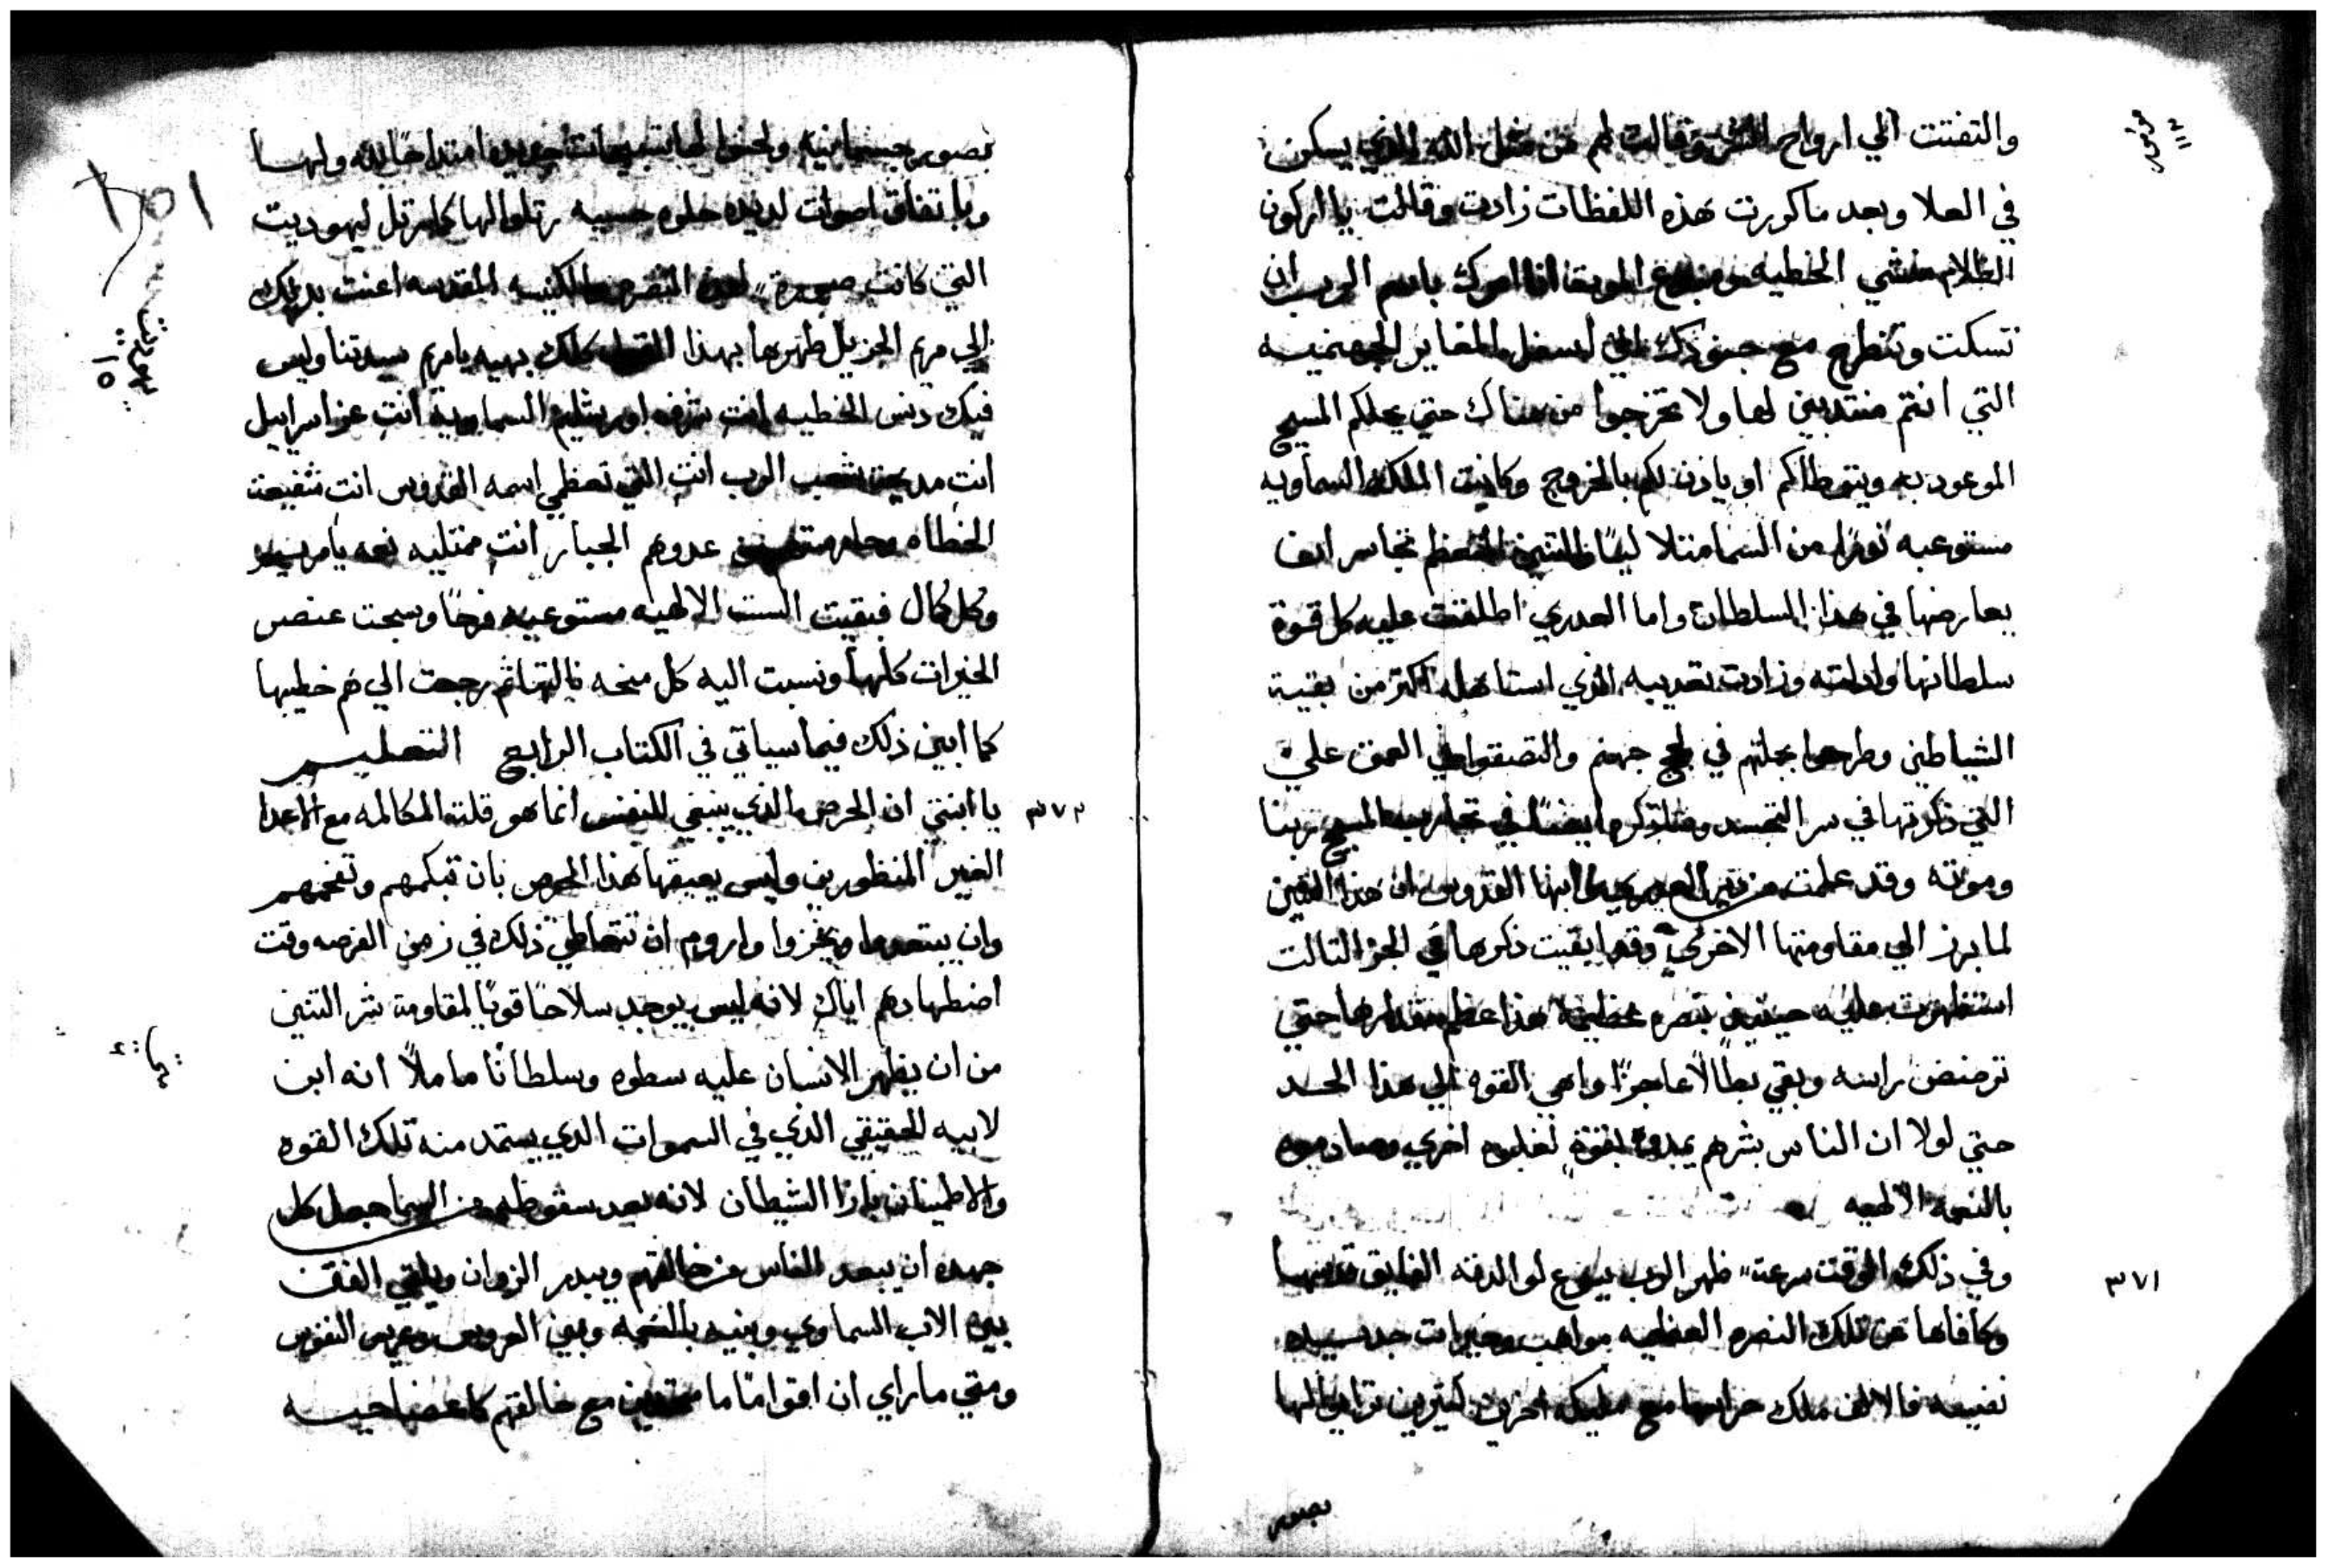 والتفتت الي ارواح الشر وقالت لهم من مثل الله الذي يسكن
في العلا وبعد ما كورت هذه اللفظات زادت وقالت يا اركون
الظلام منشي الخطيه الموت انا امرك باسم الرب ان
تسكت وتنطرح مع جنودك الي اسفل المغاير الجهنميه
التي انتم منتدبين لها ولا تخرجوا من هناك حتي يحلكم المسيح
الموعود به ويتوطاكم او ياذن لكم بالخروج وكانت الملكه السماويه
مستوعبه نورا من السما متلالياً التنين تجاسر ان
يعارضها في هذا السلطان واما العدري اطلقت عليه كل قوة
سلطانها واذلته وزادت تعديبه الذي استاهله اكتر من بقية
الشياطين وطرحوا بجملتهم في لجج جهنم والتصقوا في العمق علي
التي ذكرتها في سر التجسد ايضاً في تجارب المسيح ربنا
وموته وقد علمت ابنها القدوس ان هذا التنين
لما برز الي مقاومتها الاخري وقد ابقيت ذكرها في الجز التالت
استظهرت عليه حينيذٍ بنصره عظيمه هذا عظم مقدارها حتي
ترضض راسه وبقي بطالاً عاجزًا واهي القوه الي هذا الحد
حتي لولا ان الناس بشرهم يمدوه بقوة لغلبوه اخري وصادموه
بالنعمه الالهيه
٣٧١
وفي ذلك الوقت سرعة ظهر الرب يسوع لوالدته الفايق قدسها
وكافاها عن تلك النصره العظيمه مواهب وخيرات جديده
نفيسه فالالف ملك حراسها مع مليكه اخرين كتيرين ترايوا لها
بصور
بصور جسمانيه ولحنوا لها تسبيحات جديده امتداحًا لله ولها
وباتفاق اصوات لديده حلوه حسيه رتلوا لها كما رتل ليهوديت
التي كانت صورة لهذه النصره الكنيسه المقدسه اعنت بذلك
الي مريم الجزيل طهرها بهذا القول كلك بهيه يا مريم سيدتنا وليس
فيك دنس الخطيه انتِ شرف اورشليم السماويه انتِ عز اسراييل
انتِ مديحة شعب الرب انتِ التي تعظمي اسمه القدوس انتِ شفيعة
الخطاه عدوهم الجبار انتِ ممتليه نعمه يا مريم
وكل كمال فبقيت الست الالهيه مستوعبه فرحًا وسبحت عنصر
الخيرات كلها ونسبت اليه كل منحه نالتها ثم رجعت الي هم خطيبها
كما ابين ذلك فيما سياتي في الكتاب الرابع التعليم
٣٧٢
يا ابنتي ان الحرص الذي ينبغي للنفس انما هو قلت المكالمه مع الاعدا
الغير المنظورين وليس يعيقها هذا الحرص بان تبكمهم وتفحمهم
وان يبتعدوا ويخزوا واروم ان تتعاطي ذلك في زمن الفرصه وقت
اضطهادهم اياك لانه ليس يوجد سلاحًا قويًا لمقاومة شر التنين
من ان يظهر الانسان عليه سطوه وسلطانًا ماملاً انه ابن
لابيه الحقيقي الذي في السموات الدي يستمد منه تلك القوه
والاطمينان بازا الشيطان لانه بعد سقوطه من السما جعل كل
جهده ان يبعد الناس من خالقهم ويبدر الزوان ويلقي الفتن
بين الاب السماوي وبنيه بالنعمه وبين العروس وعريس النفوس
ومتي ما راي ان اقوامًا ما متحدين مع خالقهم كاعضا حيه
يهوديت
١٥